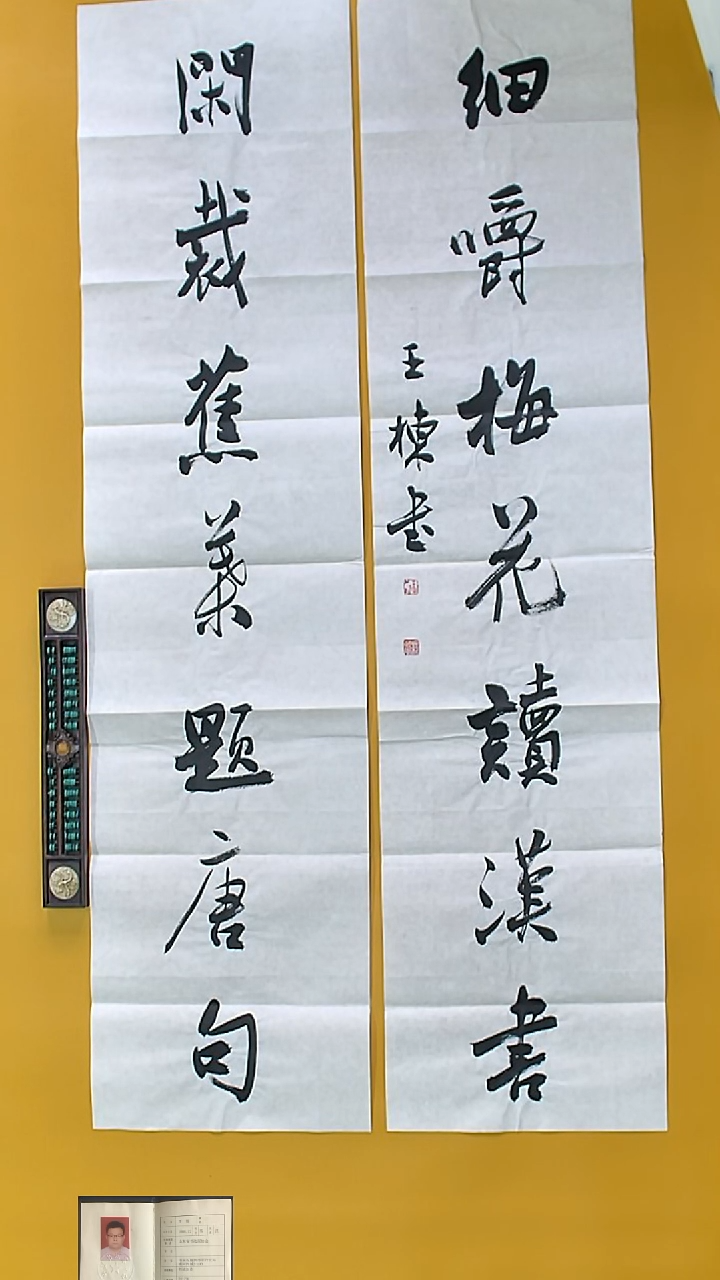 細嚼梅花讀漢書
王棟書
閑裁蕉葉題唐句